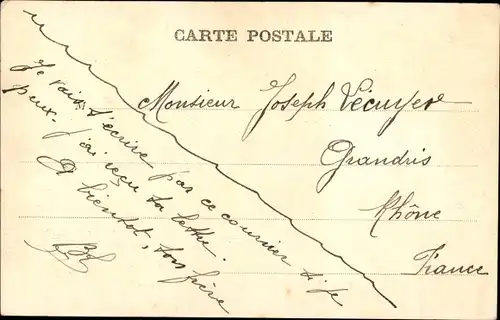 CARTE POSTALE
Je vais t'écrire par ce courrier si je
peux. J'ai reçu ta lettre.
A bientôt, ton frère
Monsieur Joseph Vécuyer
Grandris
Rhône
France